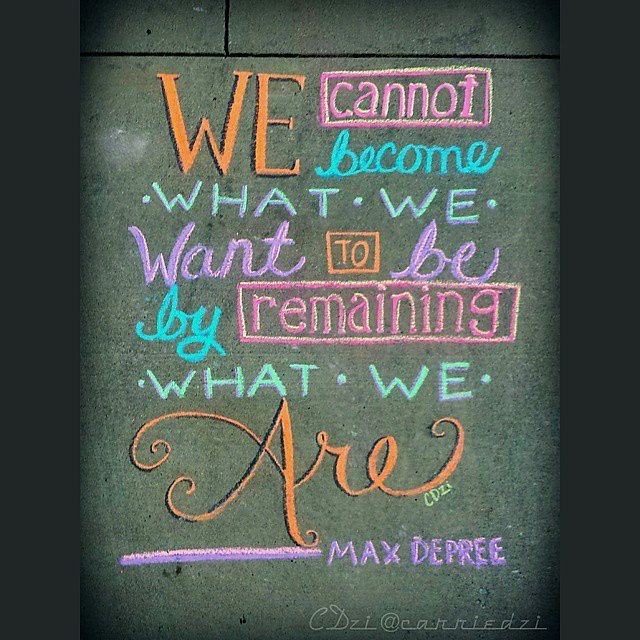 WE cannot
become
·WHAT·WE·
Want TO be
by remaining
·WHAT·WE·
Are
CDzi
MAX DEPREE
CDzi @carriedzi